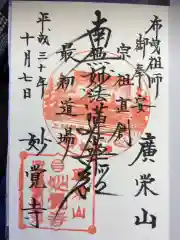 布教祖師
御奉安
廣栄山
宗祖直創
南無妙法蓮華経
最初道場
妙覚寺
平成三十年
十月七日